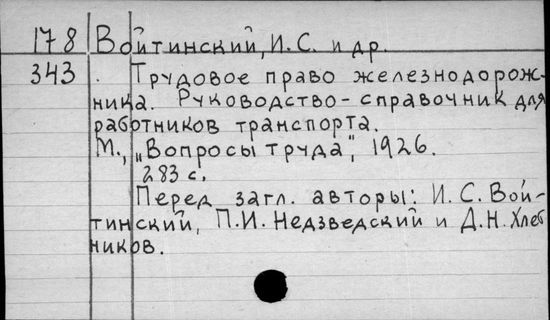 178 Войтинский, И.С. и др.
343 . Трудовое право железнодорож-
ника. Руководство-справочник для
работников транспорта.
М., „Вопросы труда", 1926.
283 с.
Перед загл. авторы: И.С. Вой-
тинский, П.И. Недзведский и Д.Н. Хлеб
ников.